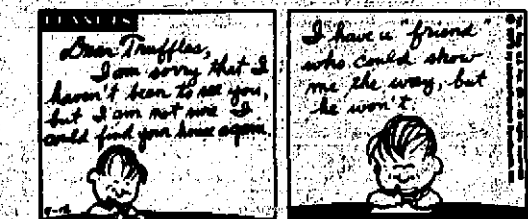 PEANUTS
Dear Truffles,
I am sorry that I
haven't been to see you,
but I am not sure I
could find your house again.
I have a "friend"
who could show
me the way, but
he won't.